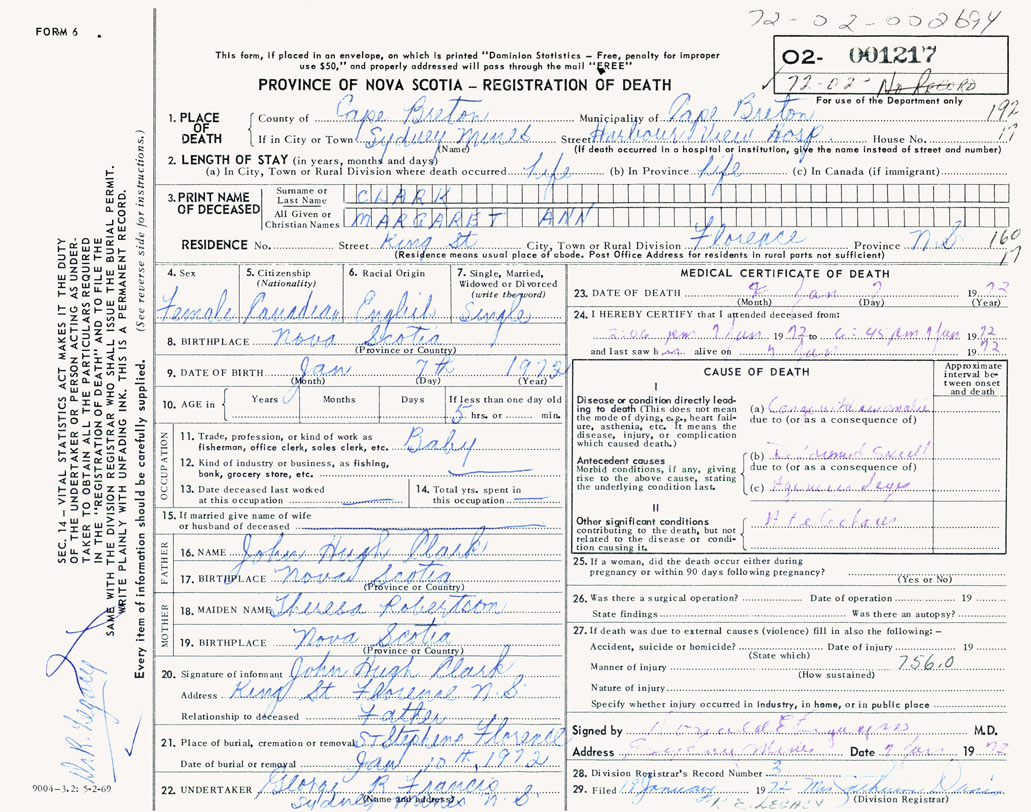 FORM 6
72-02-002694
02- 001217
72-02- No Record
For use of the Department only
This form, if placed in an envelope, on which is printed "Dominion Statistics – Free, penalty for improper
use $50," and properly addressed will pass through the mail "FREE"
PROVINCE OF NOVA SCOTIA – REGISTRATION OF DEATH
192
17
1. PLACE OF DEATH
County of Cape Breton Municipality of Cape Breton
If in City or Town Sydney Mines Street Harbour View Hosp. House No.
(Name) (If death occurred in a hospital or institution, give the name instead of street and number)
2. LENGTH OF STAY (in years, months and days)
(a) In City, Town or Rural Division where death occurred life (b) In Province life (c) In Canada (if immigrant)
3. PRINT NAME OF DECEASED
Surname or Last Name CLARK
All Given or Christian Names MARGARET ANN
RESIDENCE No. Street King St City, Town or Rural Division Florence Province N.S.
160
17
(Residence means usual place of abode. Post Office Address for residents in rural parts not sufficient)
4. Sex Female
5. Citizenship (Nationality) Canadian
6. Racial Origin English
7. Single, Married, Widowed or Divorced (write the word) Single
8. BIRTHPLACE Nova Scotia
(Province or Country)
9. DATE OF BIRTH Jan 7th 1972
(Month) (Day) (Year)
10. AGE in Years Months Days If less than one day old
5 hrs. or min.
OCCUPATION
11. Trade, profession, or kind of work as
fisherman, office clerk, sales clerk, etc. Baby
12. Kind of industry or business, as fishing,
bank, grocery store, etc.
13. Date deceased last worked
at this occupation
14. Total yrs. spent in
this occupation
15. If married give name of wife
or husband of deceased
FATHER
16. NAME John Hugh Clark
17. BIRTHPLACE Nova Scotia
(Province or Country)
MOTHER
18. MAIDEN NAME Theresa Robertson
19. BIRTHPLACE Nova Scotia
(Province or Country)
20. Signature of informant John Hugh Clark
Address King St Florence N.S.
Relationship to deceased Father
21. Place of burial, cremation or removal St Stephens Florence
Date of burial or removal Jan 10th, 1972
22. UNDERTAKER George R Francis
(Name and address) Sydney Mines N.S.
MEDICAL CERTIFICATE OF DEATH
23. DATE OF DEATH Jan 7 1972
(Month) (Day) (Year)
24. I HEREBY CERTIFY that I attended deceased from:
2:06 pm 7 Jan 1972 to 6:45 pm 7 Jan 1972
and last saw h alive on 7 Jan 1972
CAUSE OF DEATH
Approximate interval between onset and death
I
Disease or condition directly leading to death (This does not mean the mode of dying, e.g., heart failure, asthenia, etc. It means the disease, injury, or complication which caused death.)
(a) Congenital
due to (or as a consequence of)
Antecedent causes
Morbid conditions, if any, giving rise to the above cause, stating the underlying condition last.
(b) Skull
due to (or as a consequence of)
(c)
II
Other significant conditions
contributing to the death, but not related to the disease or condition causing it.
25. If a woman, did the death occur either during
pregnancy or within 90 days following pregnancy?
(Yes or No)
26. Was there a surgical operation? Date of operation 19
State findings Was there an autopsy?
27. If death was due to external causes (violence) fill in also the following: –
Accident, suicide or homicide? Date of injury 19
(State which)
Manner of injury 756.0
(How sustained)
Nature of injury
Specify whether injury occurred in industry, in home, or in public place
Signed by M.D.
Address Sydney Mines Date 7 Jan 1972
28. Division Registrar's Record Number 3
29. Filed January 1972 Mrs
(Division Registrar)
SEC. 14 – VITAL STATISTICS ACT MAKES IT THE DUTY
OF THE UNDERTAKER OR PERSON ACTING AS UNDER-
TAKER TO OBTAIN ALL THE PARTICULARS REQUIRED
IN THE "REGISTRATION OF DEATH" AND TO FILE THE
SAME WITH THE DIVISION REGISTRAR WHO SHALL ISSUE THE BURIAL PERMIT.
WRITE PLAINLY WITH UNFADING INK. THIS IS A PERMANENT RECORD.
Every item of information should be carefully supplied. (See reverse side for instructions.)
9004-3.2: 5-2-69